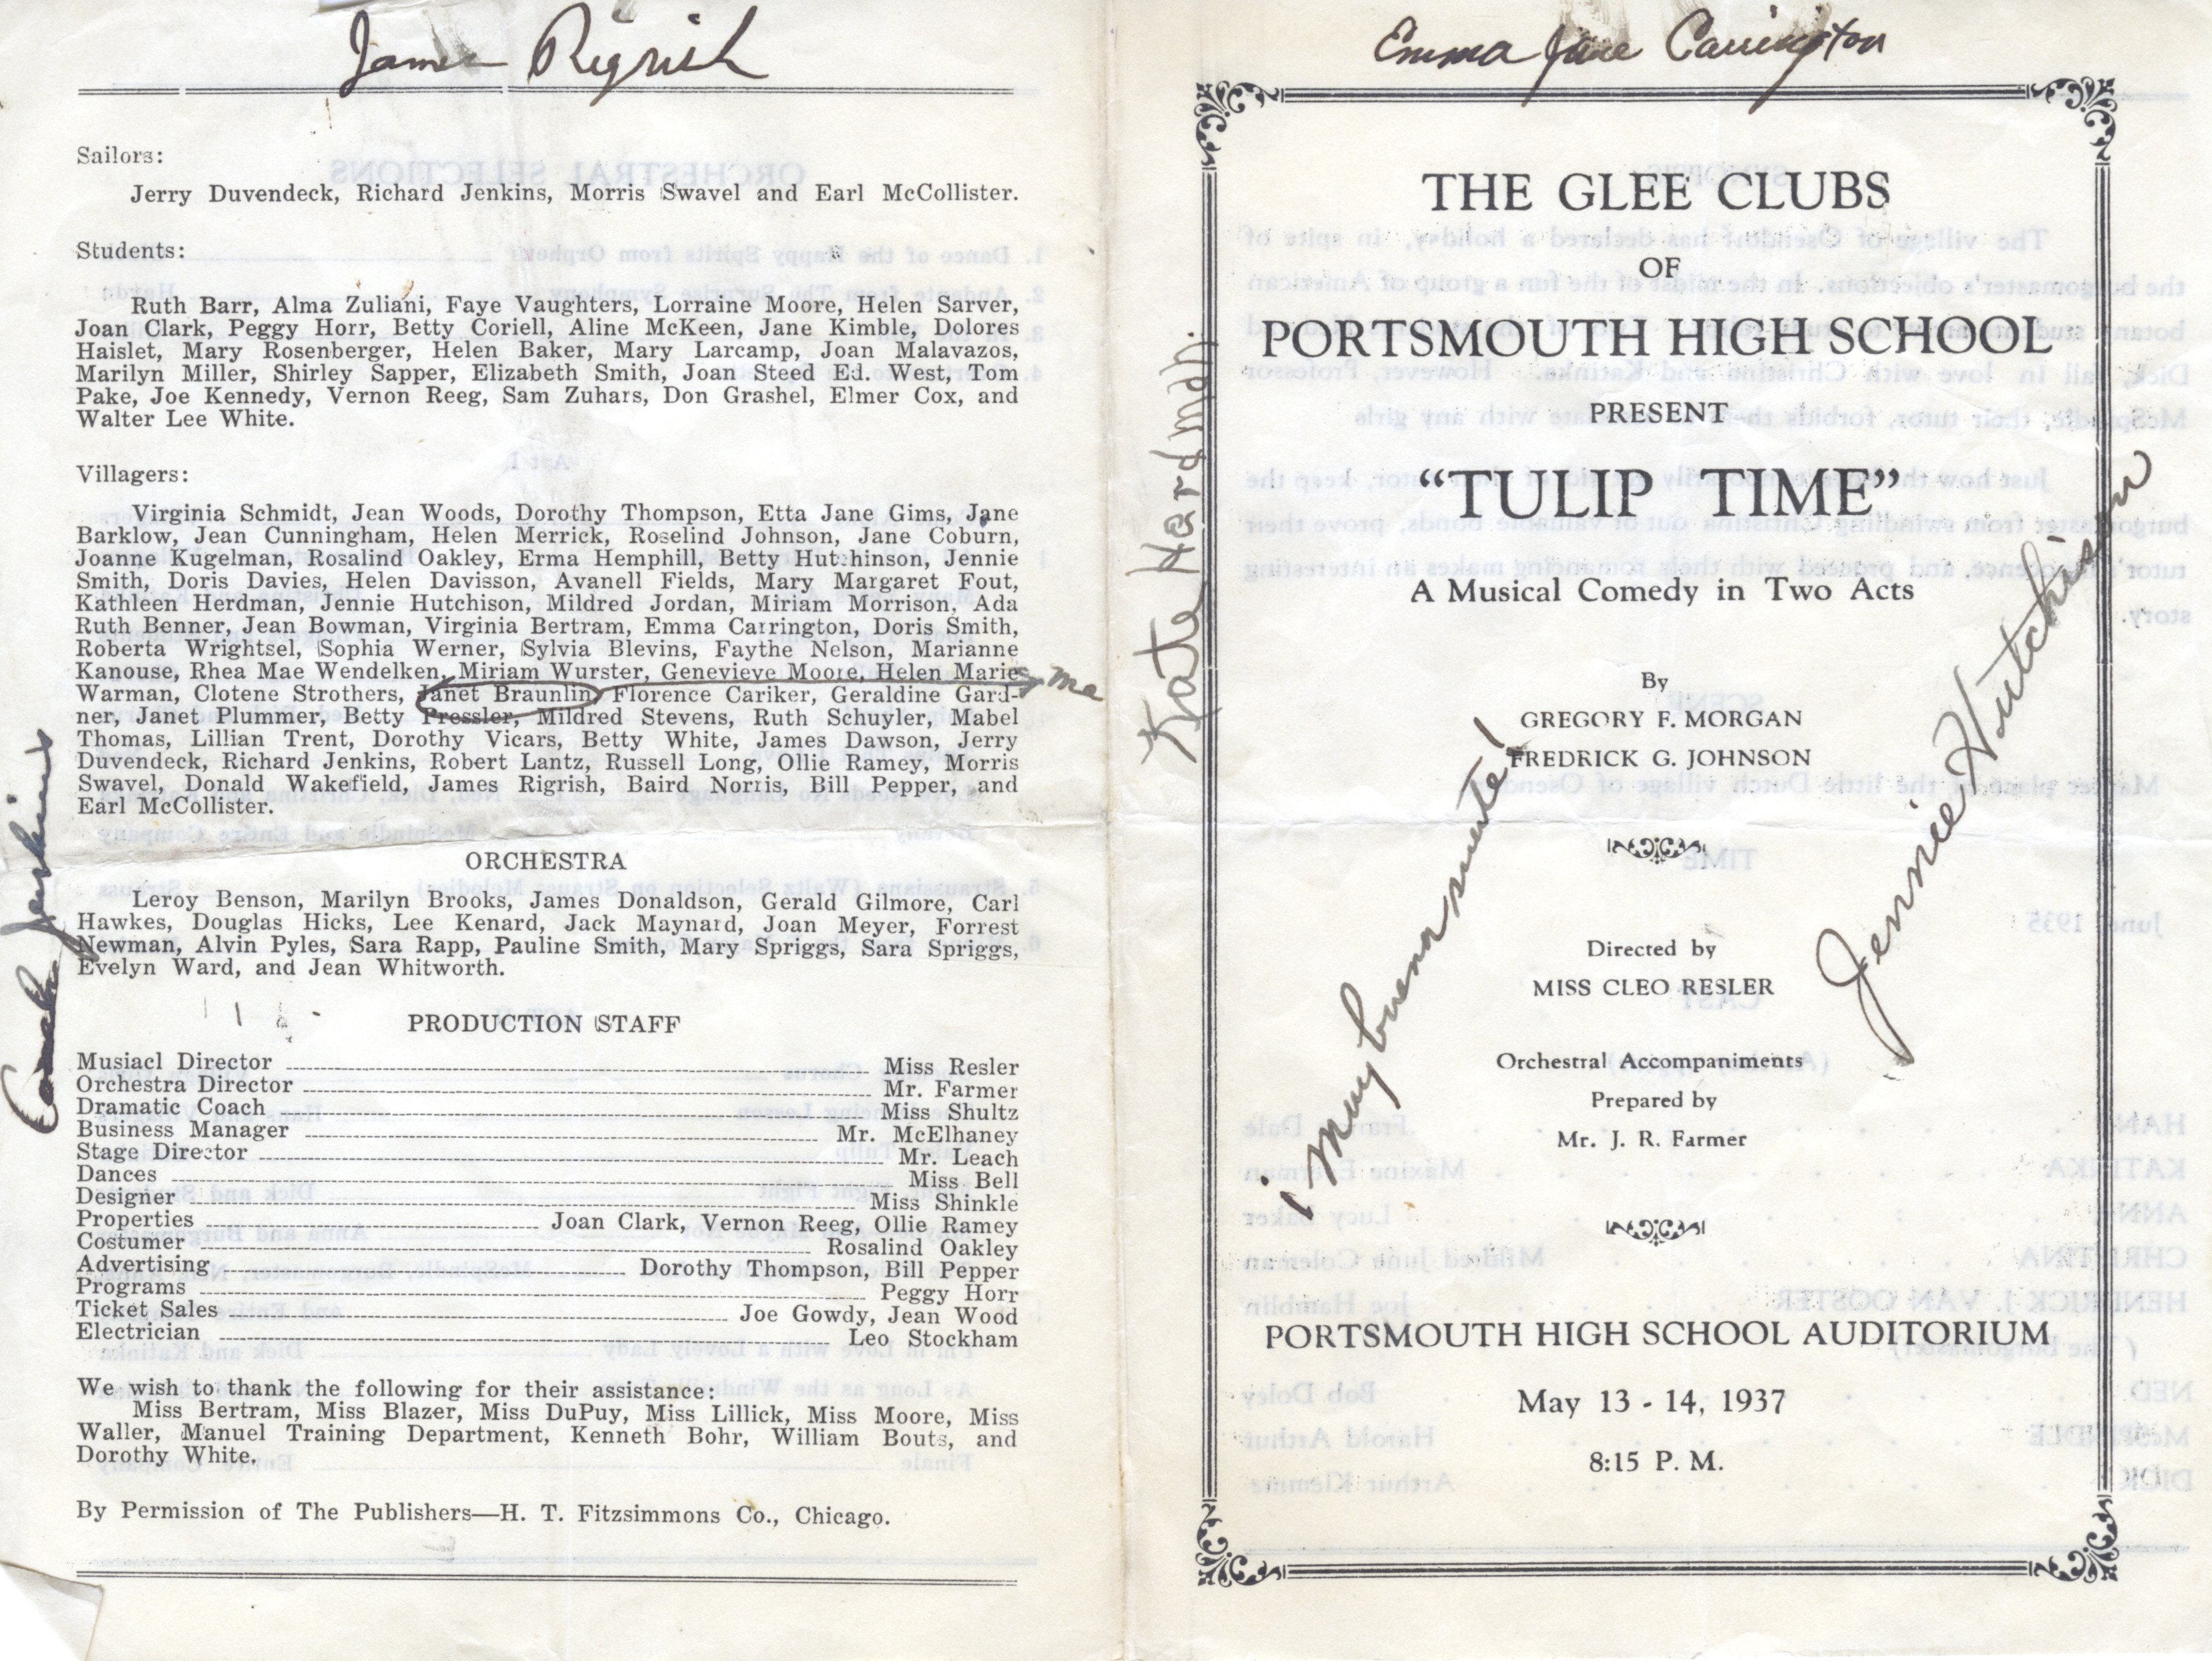 James Rigrish
Sailors:
Jerry Duvendeck, Richard Jenkins, Morris Swavel and Earl McCollister.
Students:
Ruth Barr, Alma Zuliani, Faye Vaughters, Lorraine Moore, Helen Sarver,
Joan Clark, Peggy Horr, Betty Coriell, Aline McKeen, Jane Kimble, Dolores
Haislet, Mary Rosenberger, Helen Baker, Mary Larcamp, Joan Malavazos,
Marilyn Miller, Shirley Sapper, Elizabeth Smith, Joan Steed Ed. West, Tom
Pake, Joe Kennedy, Vernon Reeg, Sam Zuhars, Don Grashel, Elmer Cox, and
Walter Lee White.
Villagers:
Virginia Schmidt, Jean Woods, Dorothy Thompson, Etta Jane Gims, Jane
Barklow, Jean Cunningham, Helen Merrick, Roselind Johnson, Jane Coburn,
Joanne Kugelman, Rosalind Oakley, Erma Hemphill, Betty Hutchinson, Jennie
Smith, Doris Davies, Helen Davisson, Avanell Fields, Mary Margaret Fout,
Kathleen Herdman, Jennie Hutchison, Mildred Jordan, Miriam Morrison, Ada
Ruth Benner, Jean Bowman, Virginia Bertram, Emma Carrington, Doris Smith,
Roberta Wrightsel, Sophia Werner, Sylvia Blevins, Faythe Nelson, Marianne
Kanouse, Rhea Mae Wendelken, Miriam Wurster, Genevieve Moore, Helen Marie
me
Warman, Clotene Strothers, Janet Braunlin, Florence Cariker, Geraldine Gard-
ner, Janet Plummer, Betty Pressler, Mildred Stevens, Ruth Schuyler, Mabel
Thomas, Lillian Trent, Dorothy Vicars, Betty White, James Dawson, Jerry
Duvendeck, Richard Jenkins, Robert Lantz, Russell Long, Ollie Ramey, Morris
Swavel, Donald Wakefield, James Rigrish, Baird Norris, Bill Pepper, and
Earl McCollister.
Jenkins
ORCHESTRA
Leroy Benson, Marilyn Brooks, James Donaldson, Gerald Gilmore, Carl
Hawkes, Douglas Hicks, Lee Kenard, Jack Maynard, Joan Meyer, Forrest
Newman, Alvin Pyles, Sara Rapp, Pauline Smith, Mary Spriggs, Sara Spriggs,
Evelyn Ward, and Jean Whitworth.
PRODUCTION STAFF
Musiacl Director Miss Resler
Orchestra Director Mr. Farmer
Dramatic Coach Miss Shultz
Business Manager Mr. McElhaney
Stage Director Mr. Leach
Dances Miss Bell
Designer Miss Shinkle
Properties Joan Clark, Vernon Reeg, Ollie Ramey
Costumer Rosalind Oakley
Advertising Dorothy Thompson, Bill Pepper
Programs Peggy Horr
Ticket Sales Joe Gowdy, Jean Wood
Electrician Leo Stockham
We wish to thank the following for their assistance:
Miss Bertram, Miss Blazer, Miss DuPuy, Miss Lillick, Miss Moore, Miss
Waller, Manuel Training Department, Kenneth Bohr, William Bouts, and
Dorothy White.
By Permission of The Publishers—H. T. Fitzsimmons Co., Chicago.
Emma Jane Carrington
Kate Herdman
THE GLEE CLUBS
OF
PORTSMOUTH HIGH SCHOOL
PRESENT
“TULIP TIME”
A Musical Comedy in Two Acts
By
GREGORY F. MORGAN
FREDRICK G. JOHNSON
¡Muy buena suerte!
Jennie Hutchison
Directed by
MISS CLEO RESLER
Orchestral Accompaniments
Prepared by
Mr. J. R. Farmer
PORTSMOUTH HIGH SCHOOL AUDITORIUM
May 13 - 14, 1937
8:15 P. M.